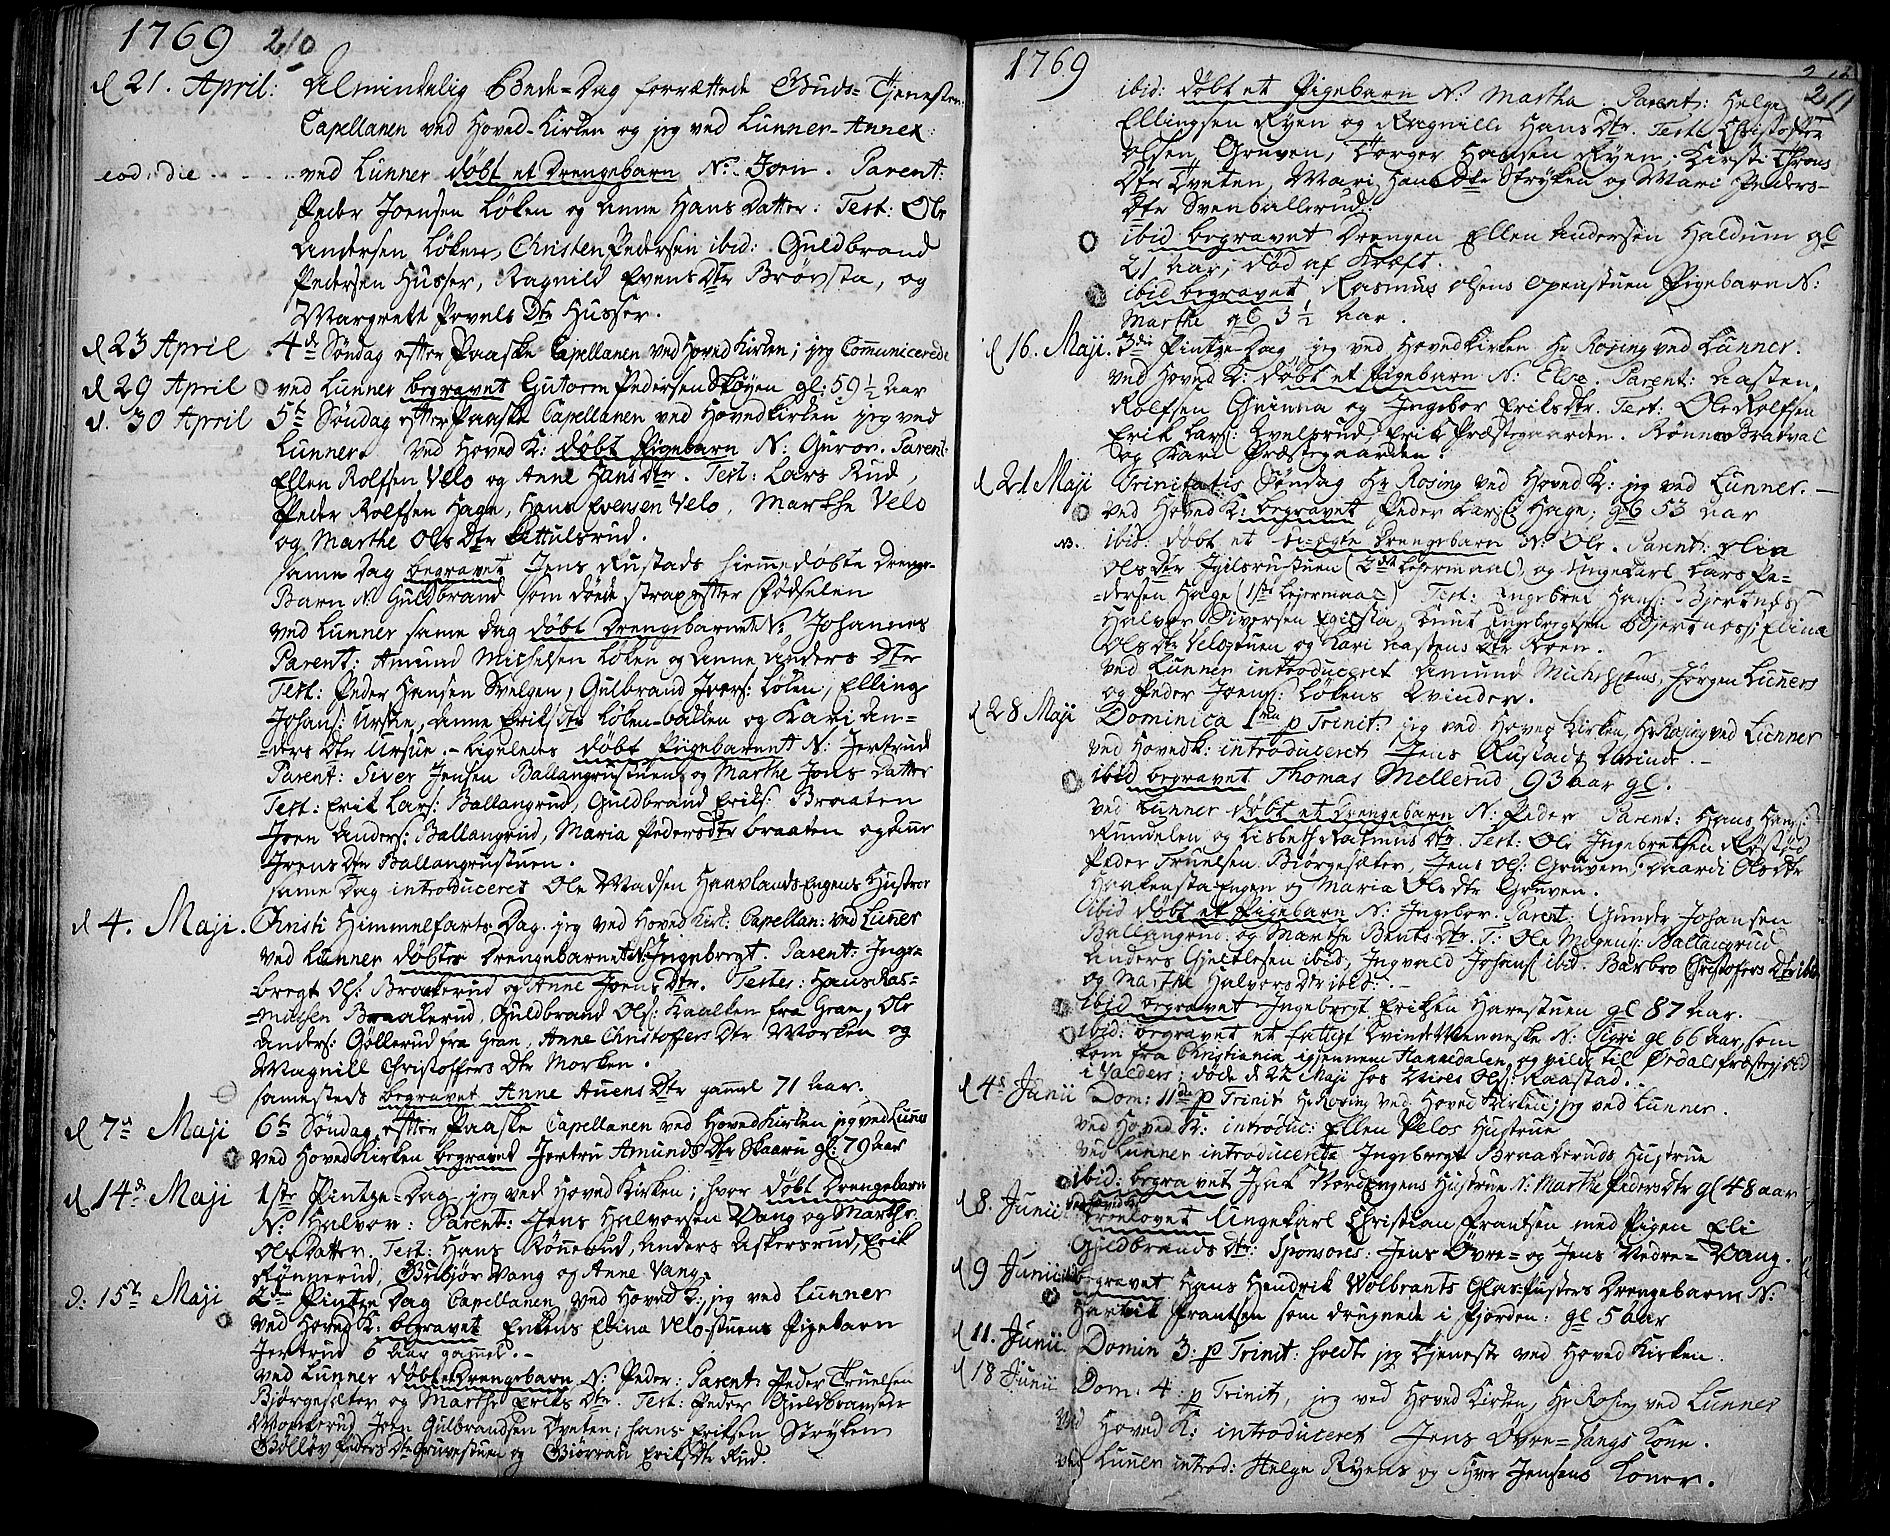 1769 210
d 21. April: Almindelig Bede-Dag forrættede Guds-Tjenesten
Capellanen ved Hoved-Kirken og jeg ved Lunner-Annex:
eod: die ved Lunner døbt et Drengebarn N: Joen. Parent:
Peder Joensen Løken og Anne Hans Datter: Test: Ole
Andersen Løken, Christen Pedersen ibid: Guldbrand
Pedersen Husser, Ragnild Evens Dtr Brøysta, og
Margrett Povels Dtr Husser.
d 23 April 4de Søndag efter Paaske Capellanen ved Hoved Kirken; jeg Communicerede
d 29 April ved Lunner begravet Gutorm Pedersen Skøyen gl: 59 1/2 Aar
d. 30 April 5te Søndag efter Paaske Capellanen ved Hovedkirken jeg ved
Lunner. Ved Hoved K: døbt Pigebarn N: Guroe. Parent:
Ellen Rolfsen Velo og Anne Hans Dtr. Test: Lars Rud,
Peder Rolfsen Hage, Hans Evensen Velo, Marthe Velo
og Marthe Ols Dtr Kittulsrud.
same Dag begravet Jens Rustads hiemmedøbte Drenge-
Barn N: Guldbrand som døede strax efter Fødselen
ved Lunner same dag døbt Drengebarnet N: Johannes
Parent: Amund Michelsen Løken og Anne Anders Dtr
Test: Peder Hansen Svelgen, Gulbrand Ivers: Løken, Elling
Johans: Urskie, Anne Eriks dtr Løken-bakken og Kari An-
=ders Dtr Urskie. - Ligeledes døbt Piigebarnet N: Jertrud
Parent: Siver Jensen Ballangrustuen, og Marthe Jons Datter
Test: Erik Lars: Ballangrud, Guldbrand Eriks: Braaten
Joen Anders: Ballangrud, Maria Pedersdtr Braaten og Anne
Jrens Dtr Ballangrustuen.
same Dag introduceret Ole Madsen Haavlands-Engens Hustroe
d 4. Maji. Christi Himmelfarts Dag. jeg ved Hoved Kirk: Capellan: ved Lunner
ved Lunner døbtes Drengebarnet N: Ingebregt. Parent: Inge-
=bregt Ols: Braakerud og Anne Joens Dtr. Testes: Hans Ras-
=mussen Braakerud, Guldbrand Ols: Kaalken fra Gran, Ole
Anders: Gøllerud fra Gran, Anne Christoffers Dtr Morken og
Magnill Christoffers Dtr Morken.
samesteds begravet Anne Auens Dtr gammel 71 Aar.
d 7de Maji 6te Søndag efter Paaske Capellanen ved Hoved Kirken jeg ved Lunner
ved Hoved Kirken begravet Jertru Amunds Dtr Skaaru gl: 79 aar
d 14de Maji 1ste Pintze-Dag jeg ved Hoved Kirken; hvor døbt Drengebarn
N: Halvor: Parent: Jens Halvorsen Vang og Marthe
Ols Datter. Test: Hans Rønnerud, Anders Askersrud, Erik
Rønnerud, Gubjør Vang og Anne Vang.
d: 15de Maji 2den Pintze Dag Capellanen ved Hoved K: jeg ved Lunner
ved Hoved K: begravet Enkens Elina Velo-stuens Pigebarn
Jertrud 6 Aar gammel. -
ved Lunner døbt et Drengebarn N: Peder: Parent: Peder Truelsen
Bjørgesæter og Marthe Eriks Dtr. Test: Peder Guldbransen
Joen Gulbrandsen Tveten; Hans Eriksen Stryken
Peders Dtr Gruvestuen og Eriks Dtr Rud.
1769 211
ibid: døbt et Pigebarn N: Martha. Parent: Helge
Ellingsen Ryen og Ragnille Hans Dtr. Test: Christoffer
Olsen Gruven, Torger Hansen Ryen. Kirsti Throns
Dtr Tveten, Mari Hans Dtr Stryken og Mari Peders-
Dtr Svenballerud.
ibid begravet Drengen Ellen Andersen Haldum gl
21 Aar, død af Kræft.
ibid begravet Rasmus Olsens Openstuen Pigebarn N:
Marthe gl 3 1/2 Aar.
d 16. Maji. 3die Pintze-Dag jeg ved Hovedkirken Hr Rosing ved Lunner.
ved Hoved K: døbt et Pigebarn N: Else. Parent: Aasten
Rolfsen Grinna og Ingebor Eriksdtr. Test: Ole Rolfsen
Erik Lars: Erik Præstegaarden. Rønnov Bratval
og Kari Præstegaarden.
d 21 Maji Trinitatis Søndag Hr Rosing ved Hoved K: jeg ved Lunner. -
ved Hoved K: begravet Peder Lars: Hage; gl 53 Aar
NB. ibid: døbt et u-ægte Drengebarn N: Ole. Parent: Olia
Ols Dtr Egilsrustuen (2det Lejermaal), og Ungekarl Lars Pe-
=dersen Hage (1ste Lejermaal) Test: Engebret Hans: Bjertnæss
Halvor Siversen Egilsta, Knut Engebregtsen Bdjertness; Elina
Ols Dtr Velostuen og Kari Aastens Dtr Roen.
ved Lunner introduceret Amund Michelsens, Jørgen Luners
og Peder Joens: Løkens Qvinder.
d 28 Maji Dominica 1ma p Trinit: jeg ved Hoved Kirken, Hr Rosing ved Lunner
ved Hovedk: introduceret Jens Rustads Qvinde. -
ibid begravet Thomas Mellerud 93 aar gl.
ved Lunner døbt et Drengebarn N: Peder Parent: Hans Hans:
Rundelen og Lisbeth Rasmus Dtr. Test: Ole Ingebretsen Røstød
Peder Truelsen Biørgesæter, Jens Ols: Gruven, Taardi Olsdtr
Haakensta Engen og Maria Olsdtr Gruven.
ibid døbt et Pigebarn N: Ingebor. Parent: Gunder Johansen
Ballangrud og Marthe Bents Dtr. T: Ole Mogens: Ballangrud
Anders Gjetlesen ibid, Ingvald Johans: ibid. Barbro Christoffers Dtr ibid
og Marthe Halvors Dtr ibid: -
ibid begravet Ingebregt Eriksen Harestuen gl 87 Aar.
ibid: begravet et fattigt Qvinde Menneske N: Siyri gl 66 Aar, som
kom fra Christiania igjennem Hannedalen, og vilde til Ørdals præstegield
i Valders; døde d 22 Maji hos Niels Ols: Raastad.
d 4de Junii Dom: 11da p Trinit Hr Rosing ved Hoved Kirken; jeg ved Lunner.
ved Hoved K: introduc: Ellen Velos Hustrue
ved Lunner introducerede Ingebregt Braakeruds Hustrue
ibid: begravet Isak Nordengens Hustrue N: Marthe Pedersdtr gl 48 aar
d 8. Junii ved Hoved K: trolovet Ungekarl Christian Frantsen med Pigen Eli
Guldbrands Dtr: Sponsores: Jens Øvre= og Jens Nedre= Vang.
d 9 Junii ibid begravet Hans Hendrik Wolbrants Glas-Pusters Drengebarn N:
Hartvik Frantsen som drugnede i Fjorden: gl 5 aar
d 11. Junii. Domin 3: p Trinit: holdte jeg Tjeneste ved Hoved Kirken.
d 18 Junii Dom: 4: p Trinit, jeg ved Hoved Kirken, Hr Rosing ved Lunner
Ved Hoved K: introduceret Jens Øvre=Vangs Kone.
ved Lunner introd: Helge Ryens og Iver Jensens Koner.